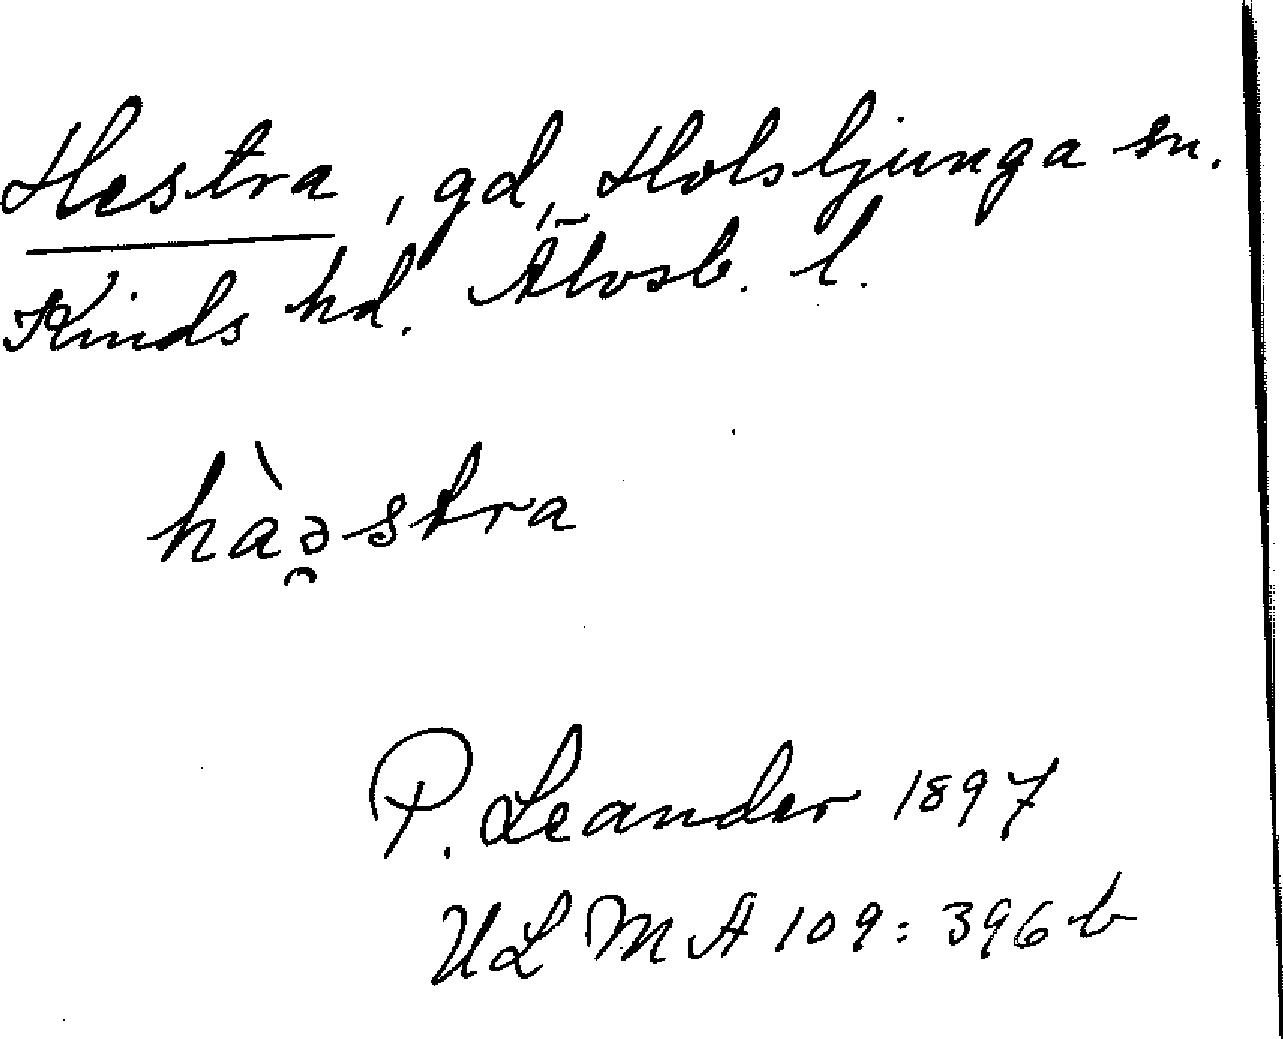 Hestra, gd, Holsljunga sn.
Kinds hd. Älvsb. l.
hàə̯stra
P. Leander 1897
ULMA 109:396b